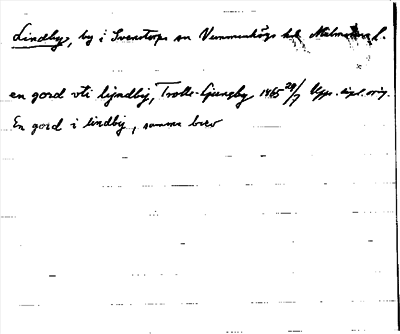 Lindby, by i Svenstorps sn Vemmenhögs hd. Malmöhus l.
en gord vti lijndbij, Trolle-Ljungby 1465 29/7 Upps. dipl. orig.
En gord i lindbij, samma brev